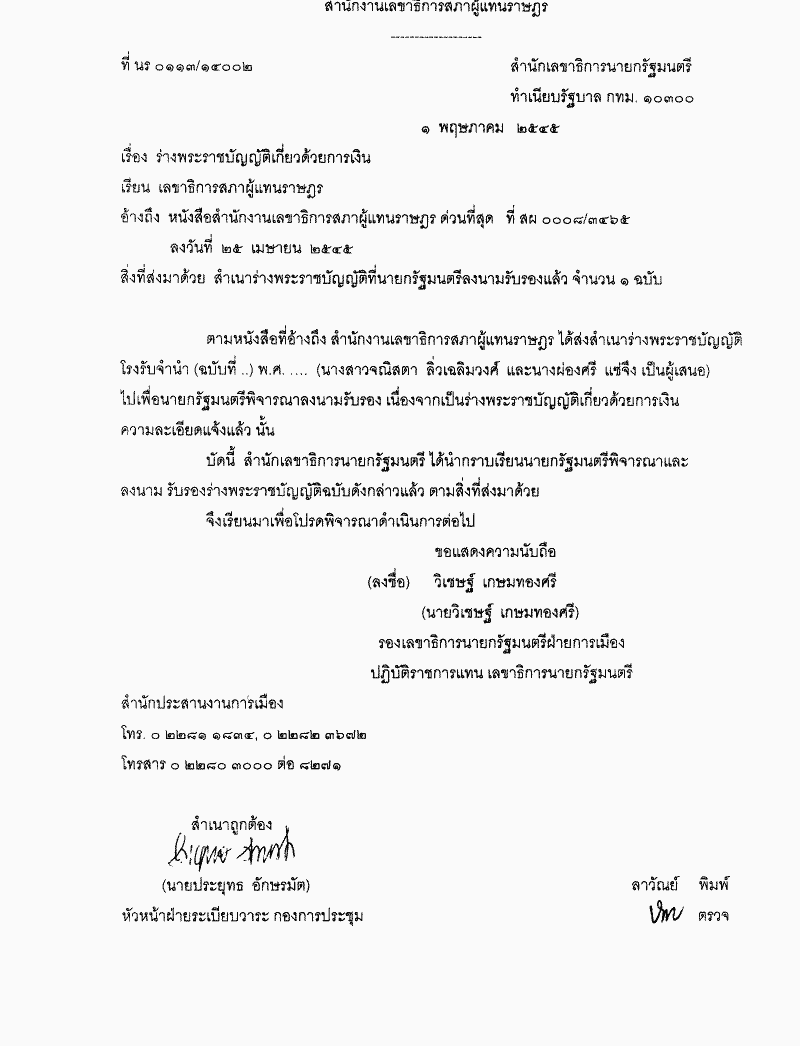 สำนักงานเลขาธิการสภาผู้แทนราษฎร
-------------------
ที่ นร ๐๑๑๓/๑๔๐๐๒ สำนักเลขาธิการนายกรัฐมนตรี
ทำเนียบรัฐบาล กทม. ๑๐๓๐๐
๑ พฤษภาคม ๒๕๔๕
เรื่อง ร่างพระราชบัญญัติเกี่ยวด้วยการเงิน
เรียน เลขาธิการสภาผู้แทนราษฎร
อ้างถึง หนังสือสำนักงานเลขาธิการสภาผู้แทนราษฎร ด่วนที่สุด ที่ สผ ๐๐๐๘/๓๔๖๕
ลงวันที่ ๒๕ เมษายน ๒๕๔๕
สิ่งที่ส่งมาด้วย สำเนาร่างพระราชบัญญัติที่นายกรัฐมนตรีลงนามรับรองแล้ว จำนวน ๑ ฉบับ
ตามหนังสือที่อ้างถึง สำนักงานเลขาธิการสภาผู้แทนราษฎร ได้ส่งสำเนาร่างพระราชบัญญัติ
โรงรับจำนำ (ฉบับที่ ..) พ.ศ. .... (นางสาวจณิสตา ลิ่วเฉลิมวงศ์ และนางผ่องศรี แซ่จึง เป็นผู้เสนอ)
ไปเพื่อนายกรัฐมนตรีพิจารณาลงนามรับรอง เนื่องจากเป็นร่างพระราชบัญญัติเกี่ยวด้วยการเงิน
ความละเอียดแจ้งแล้ว นั้น
บัดนี้ สำนักเลขาธิการนายกรัฐมนตรี ได้นำกราบเรียนนายกรัฐมนตรีพิจารณาและ
ลงนาม รับรองร่างพระราชบัญญัติฉบับดังกล่าวแล้ว ตามสิ่งที่ส่งมาด้วย
จึงเรียนมาเพื่อโปรดพิจารณาดำเนินการต่อไป
ขอแสดงความนับถือ
(ลงชื่อ) วิเชษฐ์ เกษมทองศรี
(นายวิเชษฐ์ เกษมทองศรี)
รองเลขาธิการนายกรัฐมนตรีฝ่ายการเมือง
ปฏิบัติราชการแทน เลขาธิการนายกรัฐมนตรี
สำนักประสานงานการเมือง
โทร. ๐ ๒๒๘๑ ๑๘๓๔, ๐ ๒๒๘๒ ๓๖๗๒
โทรสาร ๐ ๒๒๘๐ ๓๐๐๐ ต่อ ๘๒๗๑
สำเนาถูกต้อง
(นายประยุทธ อักษรมัต) ลาวัณย์ พิมพ์
หัวหน้าฝ่ายระเบียบวาระ กองการประชุม ตรวจ